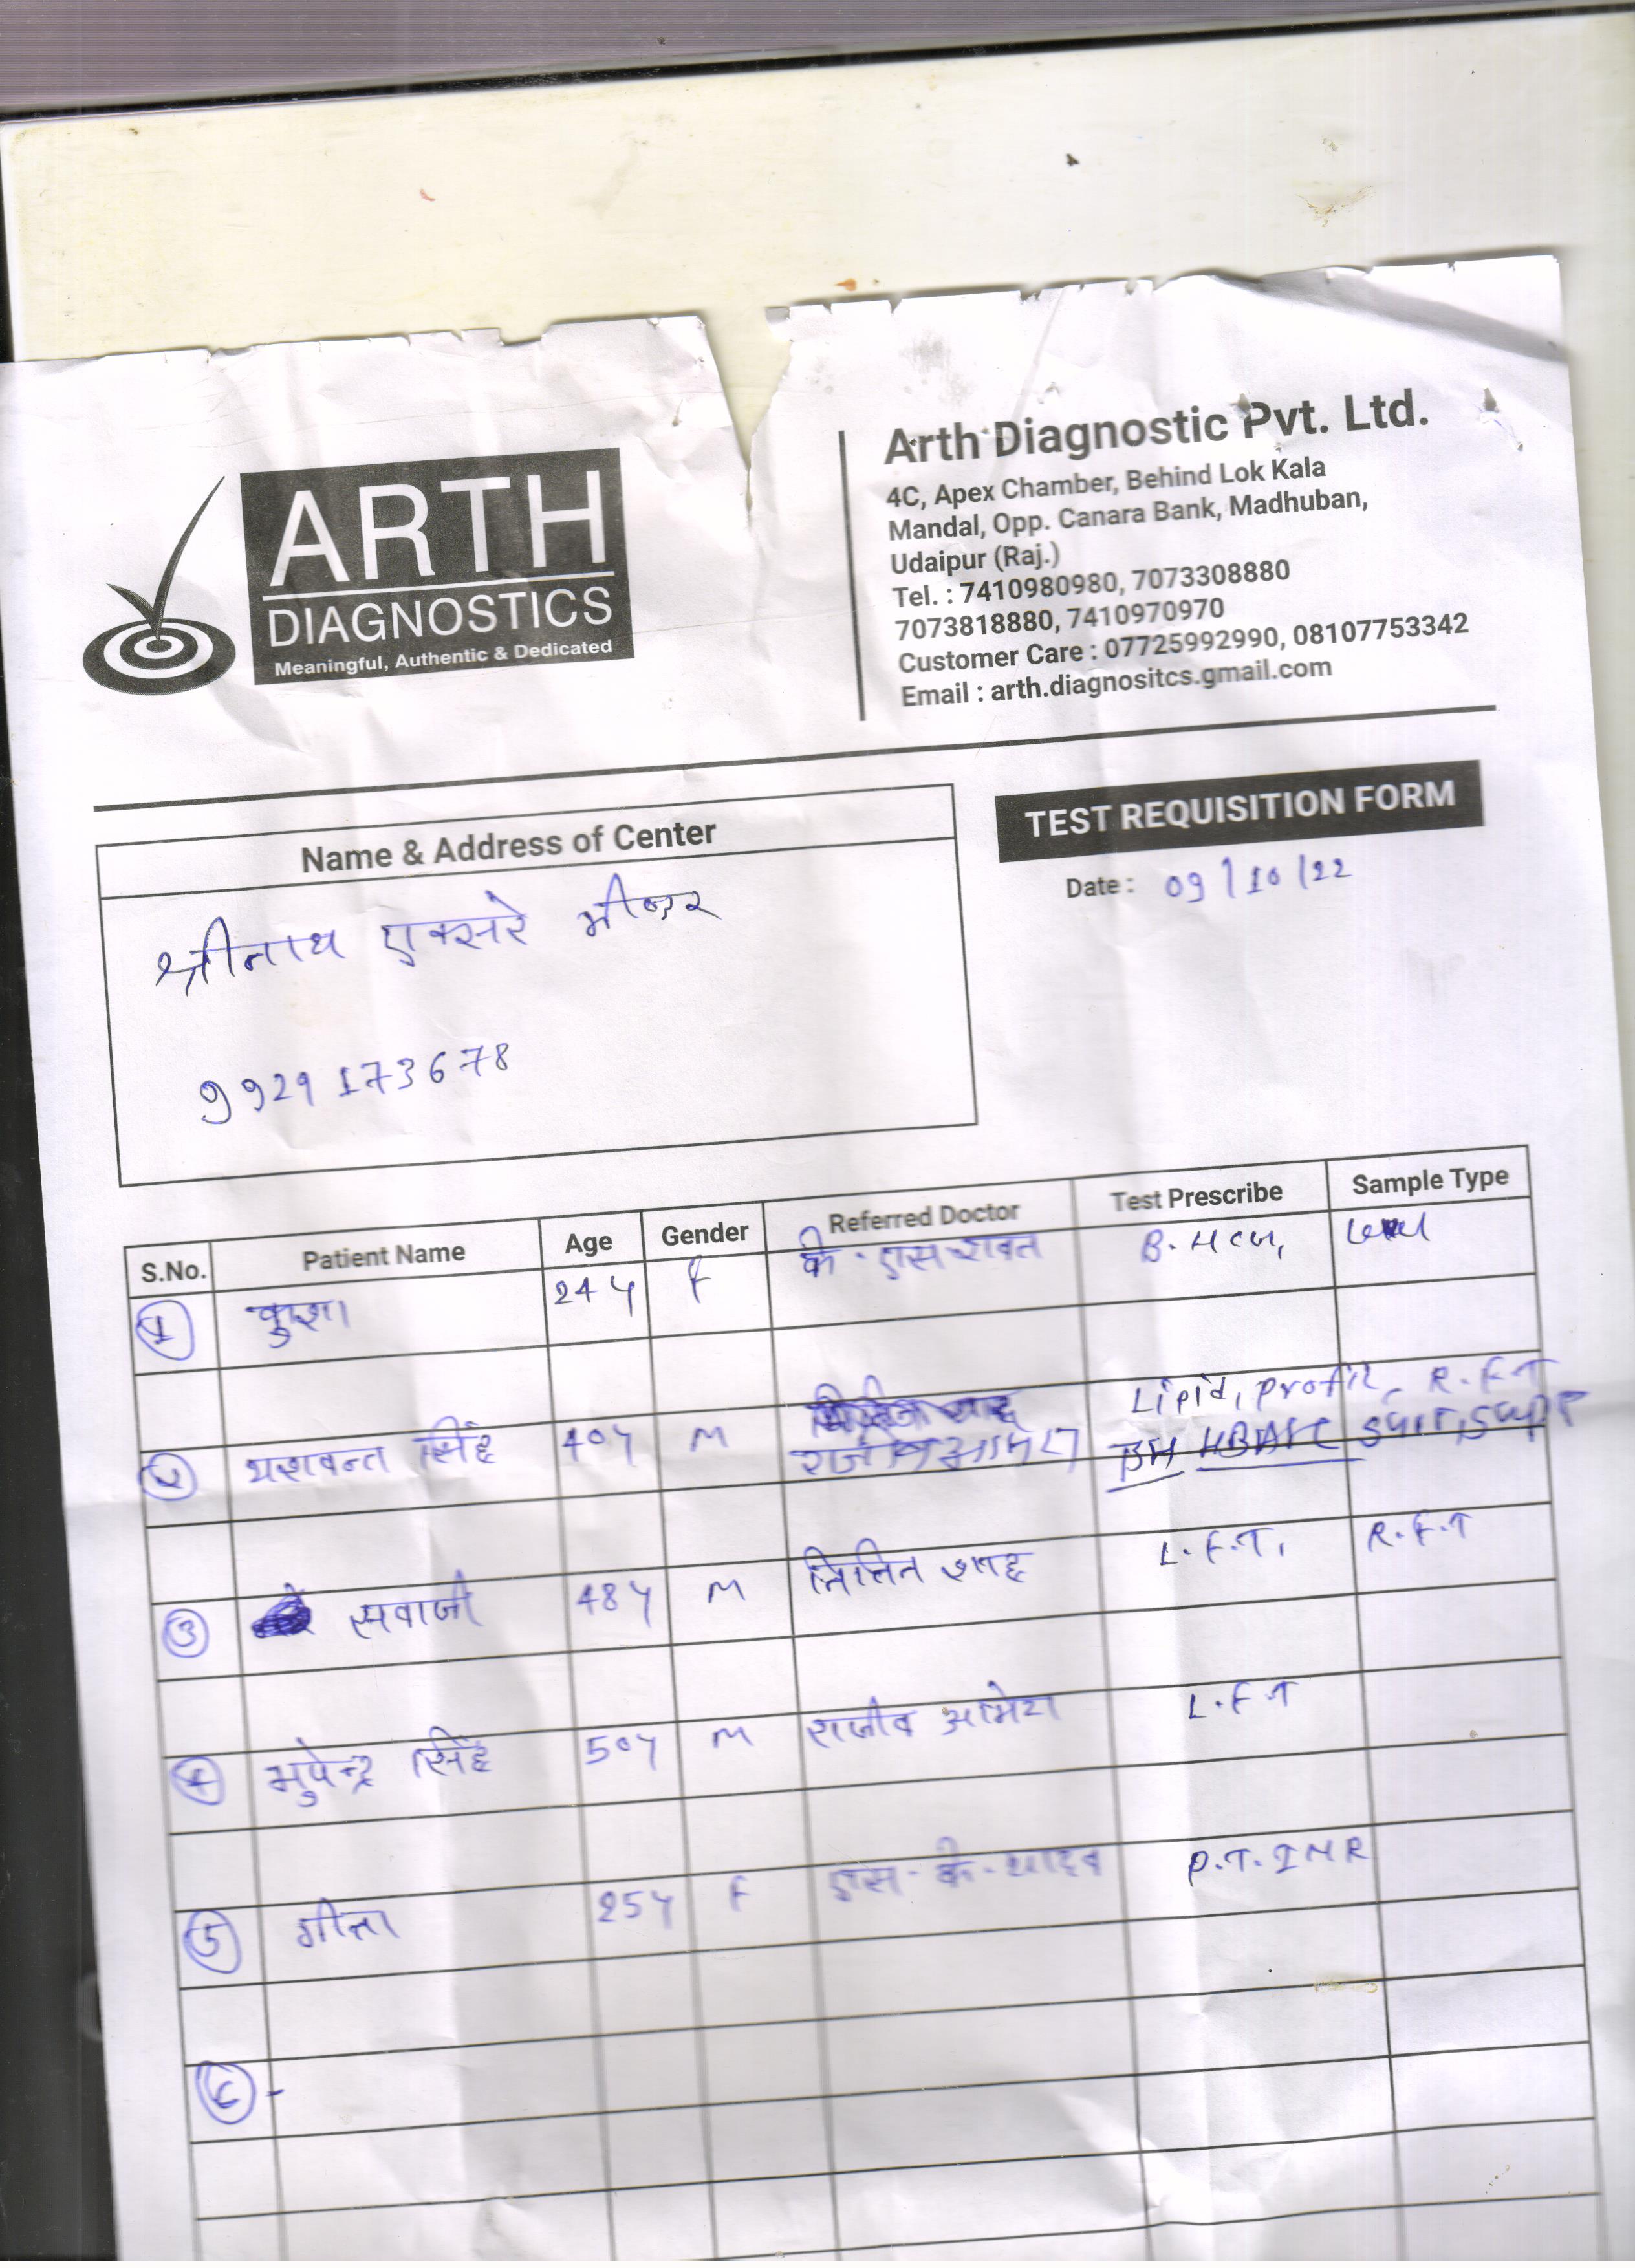 ARTH
DIAGNOSTICS
Meaningful, Authentic & Dedicated
Arth Diagnostic Pvt. Ltd.
4C, Apex Chamber, Behind Lok Kala
Mandal, Opp. Canara Bank, Madhuban,
Udaipur (Raj.)
Tel. : 7410980980, 7073308880
7073818880, 7410970970
Customer Care : 07725992990, 08107753342
Email : arth.diagnositcs.gmail.com
Name & Address of Center
श्रीनाथ एक्सरे भीण्डर
9929173678
TEST REQUISITION FORM
Date : 09/10/22
S.No. Patient Name Age Gender Referred Doctor Test Prescribe Sample Type
1 24 y F के. एस रावत B. HCG, Level
Lipid, profil, R.F.T
2 यशवन्त सिंह 40y M HBA1C
3 सवाजी 48y M नितिन शाह L.F.T, R.F.T
4 भुपेन्द्र सिंह 50y M राजीव आमेटा L.F.T
5 गीता 25y F एस. के. यादव P.T. INR
6 -